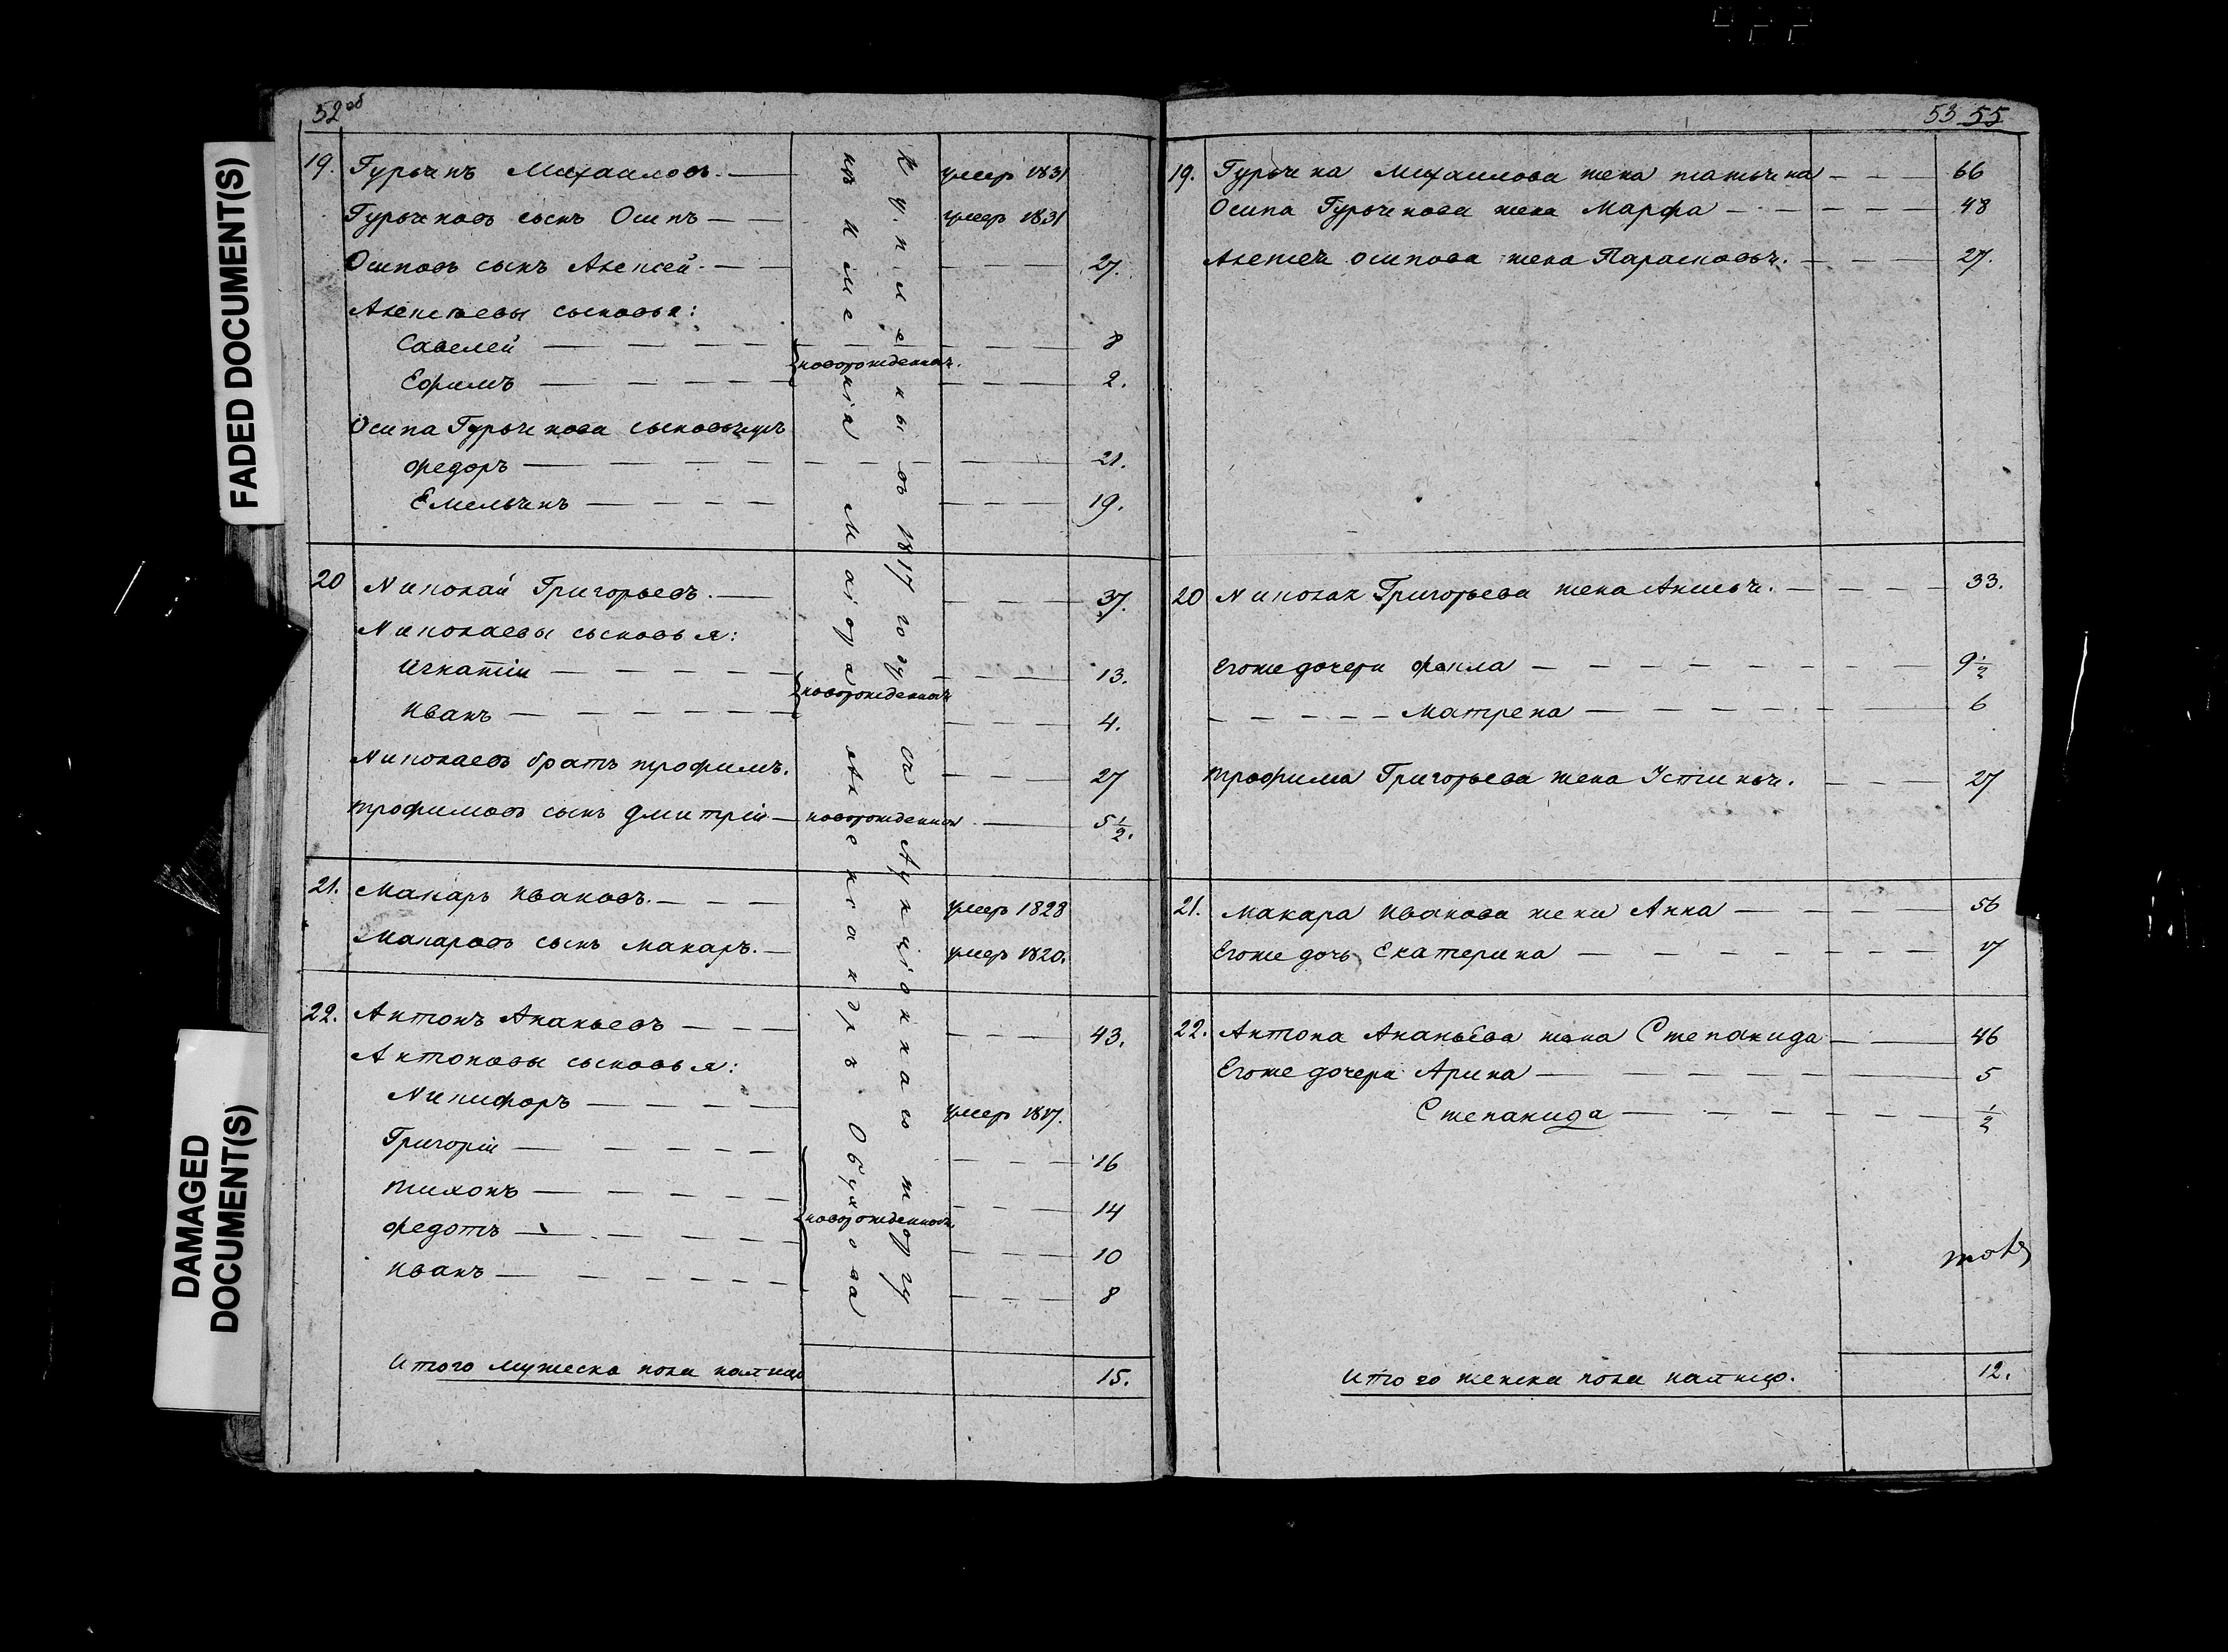 FADED DOCUMENT(S)
DAMAGED DOCUMENT(S)
52 об
19. Гурьянъ Михаиловъ. умеръ 1831
Гурьяновъ сынъ Осипъ умеръ 1831
Осиповъ сынъ Алексей. 27.
Алексеевы сыновья:
Савелей 8
новорожденныя.
Ефимъ 2.
Осипа Гурьянова сыновья
Федоръ 21.
Емельянъ 19.
20 Николай Григорьевъ. 37.
Николаевы сыновья:
Игнатiи 13.
новорожденныя
Иванъ 4.
Николаевъ братъ трофимъ. 27
трофимовъ сынъ Дмитрiи новорожденныи 5 1/2.
21. Макаръ Ивановъ. умеръ 1828
Макаровъ сынъ Макаръ. умеръ 1820.
22. Антонъ Ананьевъ 43.
Антоновы сыновья:
Никифоръ умеръ 1817.
Григорiи 16
тихонъ 14
новорожденныя
Федотъ 10
Иванъ 8
Итого мужеска пола налицо 15.
Купленныъ въ 1817 году съ Аукцiоннаго торгу
изъ имения Маiора Александръ Обухова
53 55
19. Гурьяна Михаилова жена татьяна 66
Осипа Гурьянова жена Марфа 48
Алексея Осипова жена Парасковья. 27.
20 Николая Григорьева жена Акилья. 33.
Егоже дочери Фекла 9 1/2
Матрена 6
трофима Григорьева жена Устинья. 27
21. Макара Иванова жена Анна 56
Егоже дочь Екатерина 17
22. Антона Ананьева жена Степанида 46
Егоже дочери Арина 5
Степанида 1/2
Итого женска пола налицо. 12.